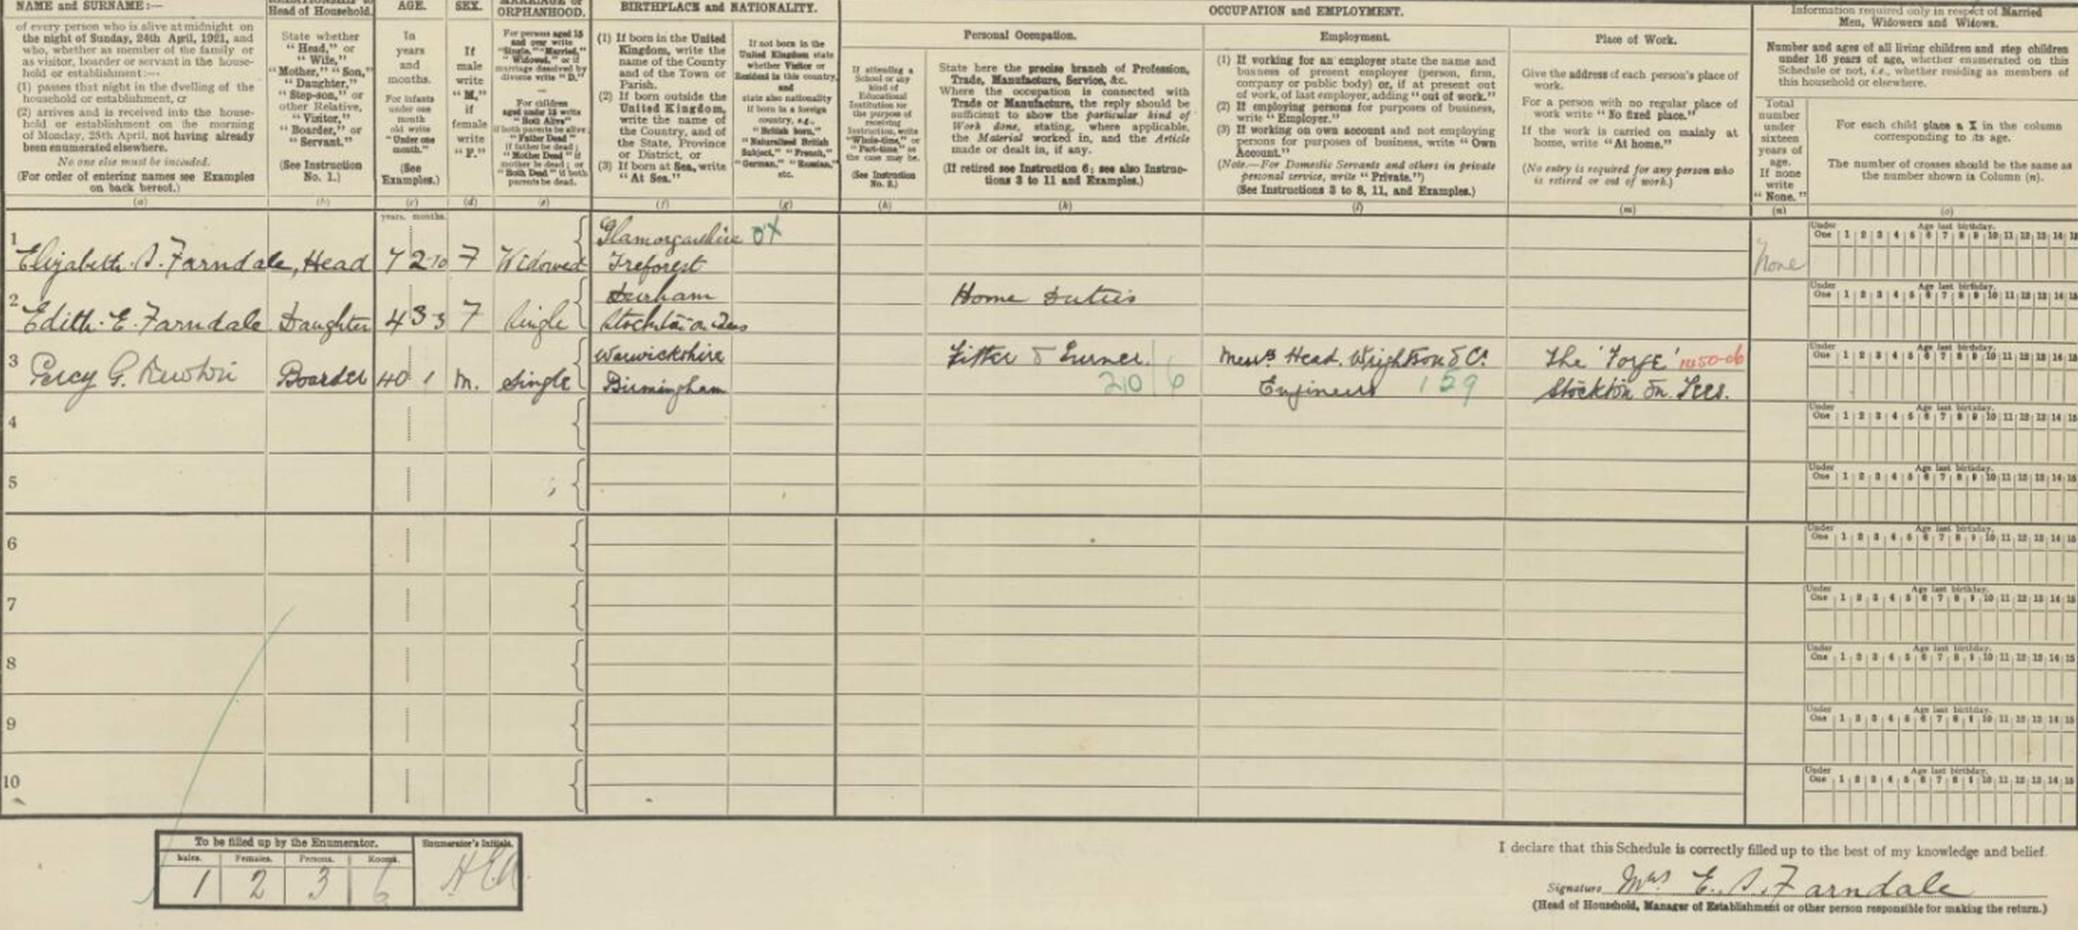 NAME and SURNAME:—
of every person who is alive at midnight on
the night of Sunday, 24th April, 1921, and
who, whether as member of the family or
as visitor, boarder or servant in the house-
hold or establishment:—
(1) passes that night in the dwelling of the
household or establishment, or
(2) arrives and is received into the house-
hold or establishment on the morning
of Monday, 25th April, not having already
been enumerated elsewhere.
No one else must be included.
(For order of entering names see Examples
on back hereof.)
(a)
Head of Household.
State whether
"Head," or
"Wife,"
"Mother," "Son,"
"Daughter,"
"Step-son," or
other Relative,
"Visitor,"
"Boarder," or
"Servant."
(See Instruction
No. 1.)
(b)
AGE.
In
years
and
months.
For infants
under one
month
old write
"Under one
month."
(See
Examples.)
(c)
SEX.
If
male
write
"M,"
if
female
write
"F."
(d)
ORPHANHOOD.
For persons aged 15
and over write
"Single," "Married,"
"Widowed," or if
marriage dissolved by
divorce write "D."
For children
aged under 15 write
"Both Alive"
if both parents be alive
"Father Dead" if
father be dead;
"Mother Dead" if
mother be dead; or
"Both Dead" if both
parents be dead.
(e)
BIRTHPLACE and NATIONALITY.
(1) If born in the United
Kingdom, write the
name of the County
and of the Town or
Parish.
(2) If born outside the
United Kingdom,
write the name of
the Country, and of
the State, Province
or District, or
(3) If born at Sea, write
"At Sea."
(f)
If not born in the
United Kingdom state
whether Visitor or
Resident in this country,
and
state also nationality
if born in a foreign
country, e.g.,
"British born,"
"Naturalised British
Subject," "French,"
"German," "Russian,"
etc.
(g)
OCCUPATION and EMPLOYMENT.
If attending a
School or any
kind of
Educational
Institution for
the purpose of
receiving
Instruction, write
"Whole-time," or
"Part-time" as
the case may be.
(See Instruction
No. 2.)
(h)
Personal Occupation.
State here the precise branch of Profession,
Trade, Manufacture, Service, &c.
Where the occupation is connected with
Trade or Manufacture, the reply should be
sufficient to show the particular kind of
Work done, stating, where applicable,
the Material worked in, and the Article
made or dealt in, if any.
(If retired see Instruction 6; see also Instruc-
tions 3 to 11 and Examples.)
(k)
Employment.
(1) If working for an employer state the name and
business of present employer (person, firm,
company or public body) or, if at present out
of work, of last employer, adding "out of work."
(2) If employing persons for purposes of business,
write "Employer."
(3) If working on own account and not employing
persons for purposes of business, write "Own
Account."
(Note.—For Domestic Servants and others in private
personal service, write "Private.")
(See Instructions 3 to 8, 11, and Examples.)
(l)
Place of Work.
Give the address of each person's place of
work.
For a person with no regular place of
work write "No fixed place."
If the work is carried on mainly at
home, write "At home."
(No entry is required for any person who
is retired or out of work.)
(m)
Information required only in respect of Married
Men, Widowers and Widows.
Number and ages of all living children and step children
under 16 years of age, whether enumerated on this
Schedule or not, i.e., whether residing as members of
this household or elsewhere.
Total
number
under
sixteen
years of
age.
If none
write
"None."
(n)
For each child place a X in the column
corresponding to its age.
The number of crosses should be the same as
the number shown in Column (n).
(o)
years. months.
1 Elizabeth. S. Farndale, Head 72 10 F Widowed Glamorganshire Treforest OX None
2 Edith. E. Farndale Daughter 43 3 F Single Durham Stockton on Tees Home Duties
3 Percy G. Newton Boarder 40 1 M. Single Warwickshire Birmingham Fitter & Turner 210/6 Messrs Head. Wrightson & Co. Engineers 159 The 'Forge' Stockton On Tees.
4
5
6
7
8
9
10
Under One Age last birthday. 1 2 3 4 5 6 7 8 9 10 11 12 13 14 15
Under One Age last birthday. 1 2 3 4 5 6 7 8 9 10 11 12 13 14 15
Under One Age last birthday. 1 2 3 4 5 6 7 8 9 10 11 12 13 14 15
Under One Age last birthday. 1 2 3 4 5 6 7 8 9 10 11 12 13 14 15
Under One Age last birthday. 1 2 3 4 5 6 7 8 9 10 11 12 13 14 15
Under One Age last birthday. 1 2 3 4 5 6 7 8 9 10 11 12 13 14 15
Under One Age last birthday. 1 2 3 4 5 6 7 8 9 10 11 12 13 14 15
Under One Age last birthday. 1 2 3 4 5 6 7 8 9 10 11 12 13 14 15
Under One Age last birthday. 1 2 3 4 5 6 7 8 9 10 11 12 13 14 15
Under One Age last birthday. 1 2 3 4 5 6 7 8 9 10 11 12 13 14 15
To be filled up by the Enumerator.
Males. Females. Persons. Rooms.
1 2 3 6
Enumerator's Initials.
I declare that this Schedule is correctly filled up to the best of my knowledge and belief.
Signature Mrs E. S. Farndale
(Head of Household, Manager of Establishment or other person responsible for making the return.)